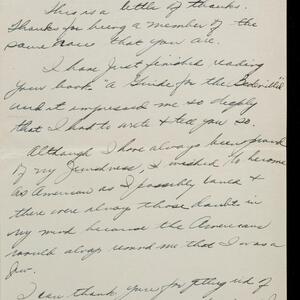 This is a letter of thanks.
Thanks for being a member of the
same race that you are.
I have just finished reading
your book "A Guide for the Bedevilled"
and it impressed me so deeply
that I had to write & tell you so.
Although I have always been proud
of my Jewishness, I wished to become
as American as I possibly could &
there were always those doubts in
my mind because the Americans
would always remind me that I was a
Jew.
I can thank you for getting rid of